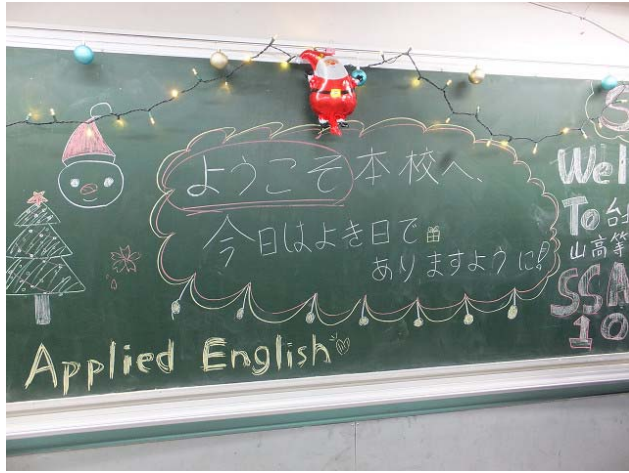 ようこそ本校へ、
今日はよき日で
ありますように!
Applied English
Wel
To 台
山高等
SSA
10